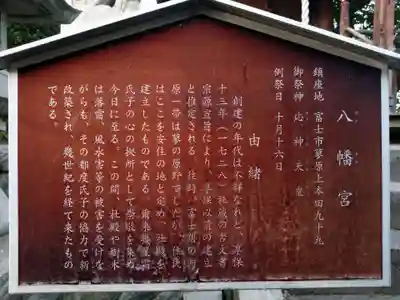 八幡宮
鎮座地 富士市蓼原上本田九十九
御祭神 応神天皇
例祭日 十月十六日
由緒
創建の年代は不詳なれど、享保
十三年（一七二八）社蔵の古文書
宗源宣旨により、享保以前の建立
と推定される。往時、富士川の河
原一帯は蓼の原野でしたが、住民
はここを安住の地と定め、社殿を
建立したものである。爾来鎮守
氏子の心の拠所として崇敬を集め
今日に至る。この間、社殿や樹木
は落雷、風水害等の被害を受けな
がらも、その都度氏子の協力で新
改築され、幾世紀を経て来たもの
である。